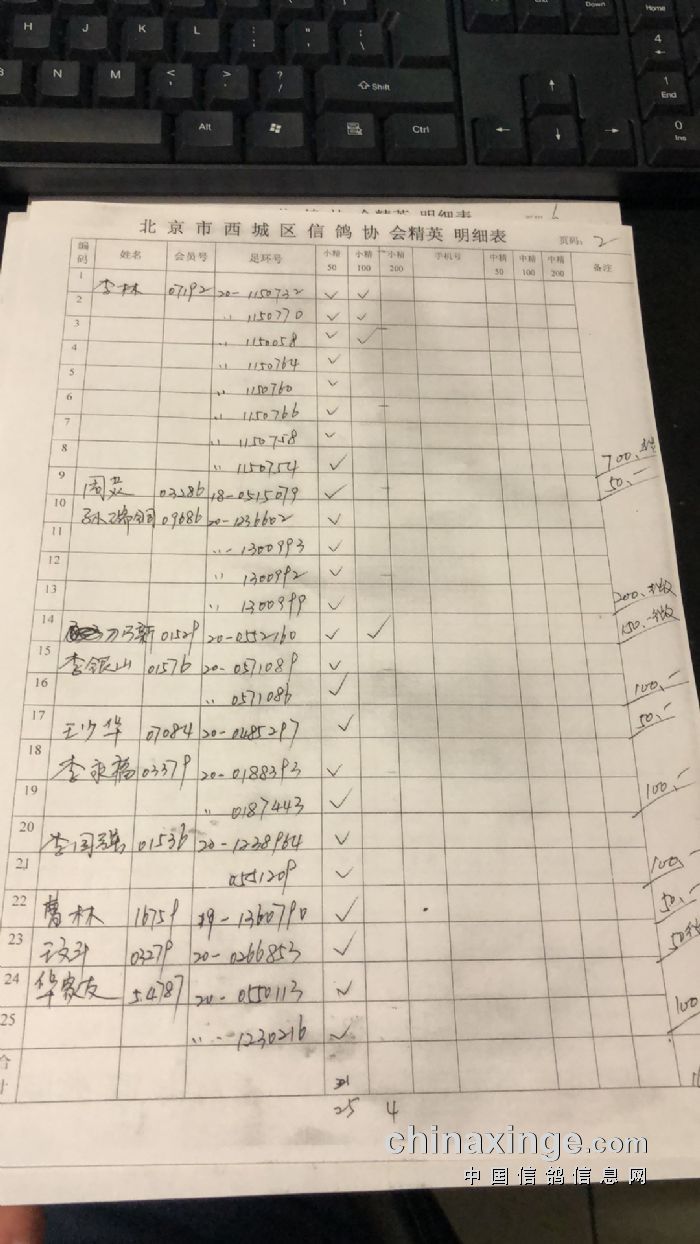 H J K L : ; " ' Home
B N M < , > . ? / ⇧ Shift 4 ←
Alt Ctrl ← ↑ ↓ → 1 End 0 Ins
北京市西城区信鸽协会精英 明细表
页码: 2
编码 姓名 会员号 足环号 小精50 小精100 小精200 手机号 中精50 中精100 中精200 备注
1 李林 07192 20-1150732 ✓ ✓
2 〃 1150770 ✓ ✓
3 〃 1150058 ✓ ✓
4 〃 1150764 ✓
5 〃 1150760 ✓
6 〃 1150766 ✓
7 〃 1150758 ✓
8 〃 1150754 ✓ 700.
9 03286 18-0515079 ✓ 50.-
10 09686 20-1236602 ✓
11 〃- 1300993 ✓
12 〃 1300992 ✓
13 〃 1300999 ✓ 200.
14 01529 20-0552160 ✓ ✓ 150.
15 李银山 01576 20-0571089 ✓
16 〃 0571086 ✓ 100.-
17 王少华 07084 20-0485297 ✓ 50.-
18 李永福 03379 20-0188393 ✓
19 〃 0187443 ✓ 100.-
20 李国强 01536 20-1238964 ✓
21 0551209 ✓ 100.-
22 曹林 16759 19-1360790 ✓ 50.-
23 03279 20-0266853 ✓ 50
24 华家友 54787 20-0550113 ✓
25 〃 - 1230216 ✓ 100
合计
25 4
chinaxinge.com
中国信鸽信息网